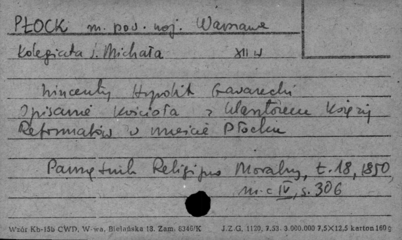 PŁOCK m. pow. woj. Warszawa
Kolegiata ś. Michała XII w
Wincenty Hypolit Gawarecki
Opisanie Kościoła z klasztorem Księży
Reformatów w mieście Płocku
Pamiętnik Religijno Moralny, t. 18, 1850,
m-c IV, s. 306
Wzór Kh-15b CWD. W-wa, Bielańska 18. Zam. 6346/K J.Z.G. 1120, 7.53. 3.000.000 7,5×12,5 karton 160 g